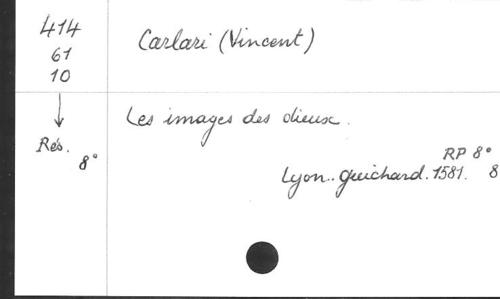 414
61
10
Carlari (Vincent)
Les images des dieux.
Rés.
8°
RP 8°
Lyon.. Guichard. 1581. 8